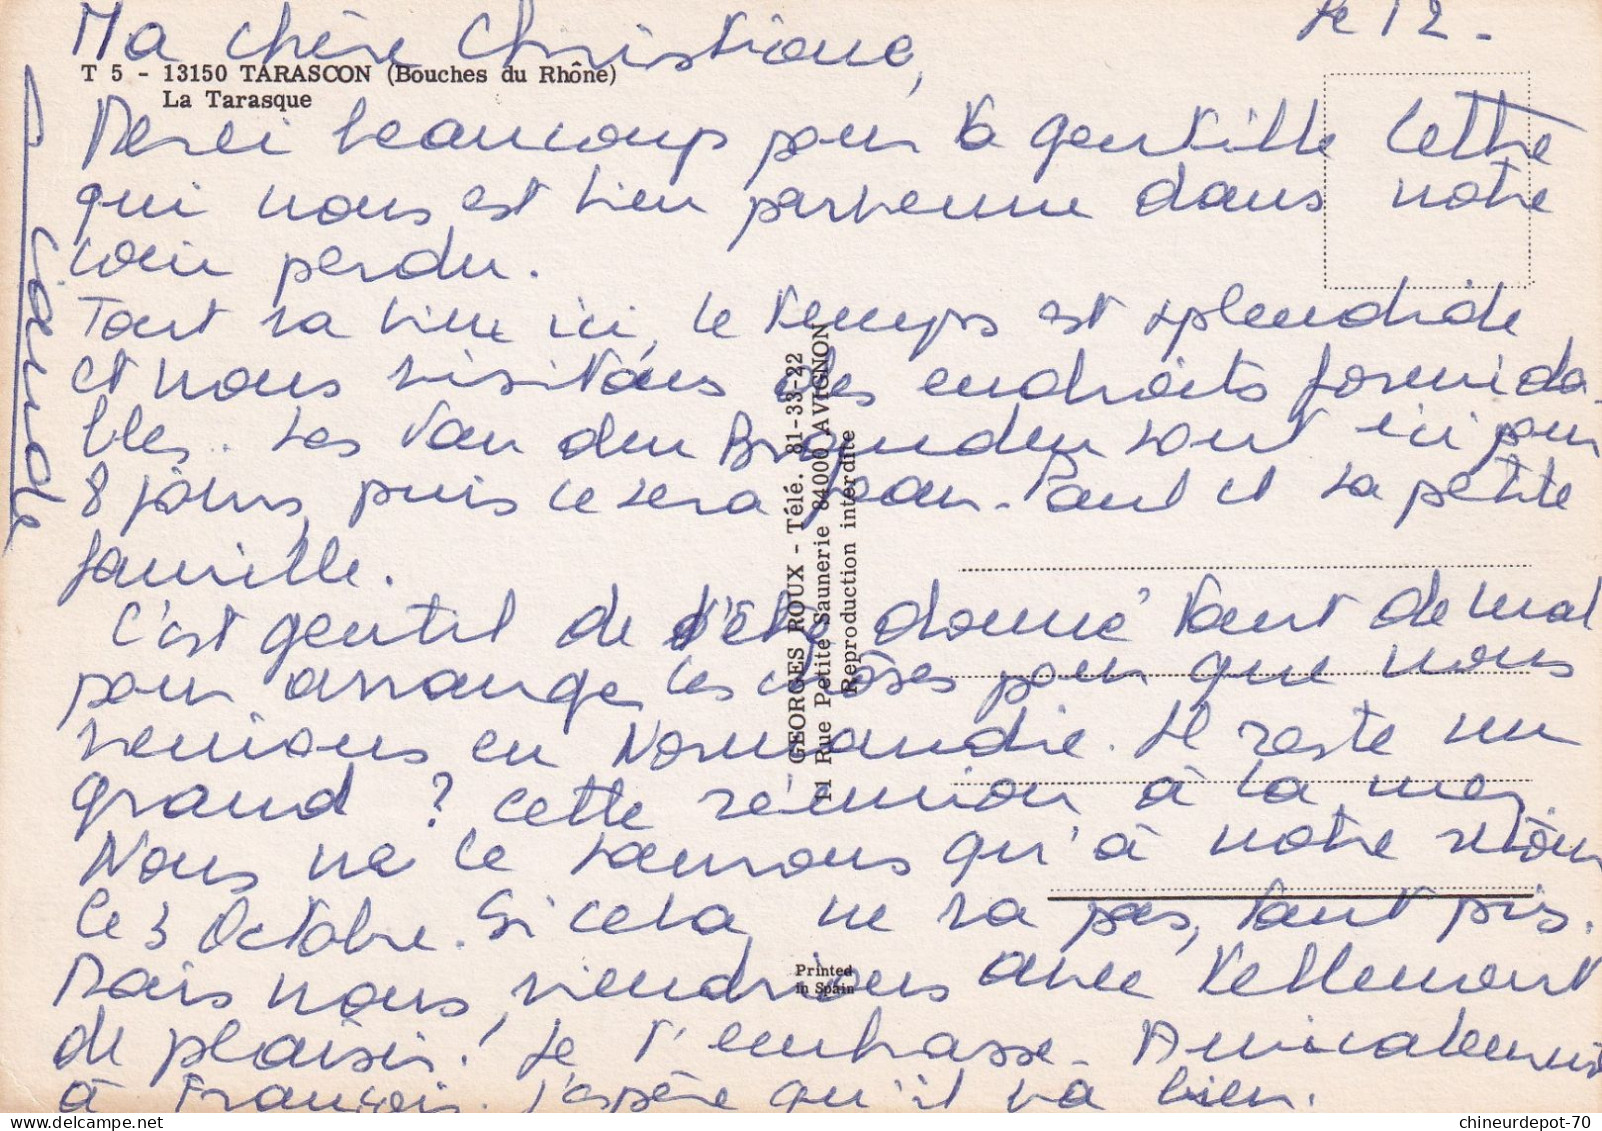 Le 12 -
Ma chère Christiane,
T 5 - 13150 TARASCON (Bouches du Rhône)
La Tarasque
Merci beaucoup pour ta gentille lettre
qui nous est bien parvenue dans notre
coin perdu.
Tout va bien ici, le temps est splendide
et nous visitons des endroits formida-
bles. Les Van den Branden sont ici pour
8 jours, puis ce sera Jean-Paul et sa petite
famille.
C'est gentil de t'être donné tant de mal
pour arranger les choses pour que nous
venions en Normandie. Il reste un
grand ? cette réunion à la mer.
Nous ne le saurons qu'à notre retour
le 3 Octobre. Si cela ne va pas, tant pis.
Mais nous viendrions avec tellement
de plaisir! Je t'embrasse - Amicalement
à François. J'espère qu'il va bien.
GEORGES ROUX - Télé. 81-33-22
11 Rue Petite Saunerie 84000 AVIGNON
Reproduction interdite
Printed
in Spain
chineurdepot-70